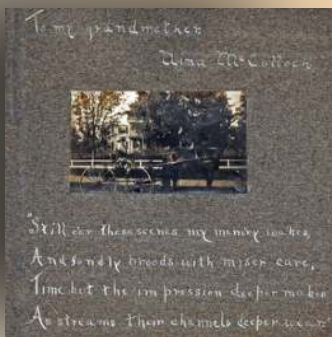 To my grandmother
Alma McColloch
"Still o'er these scenes my memory wakes,
And fondly broods with miser care,
Time but the impression deeper makes
As streams their channels deeper wear."